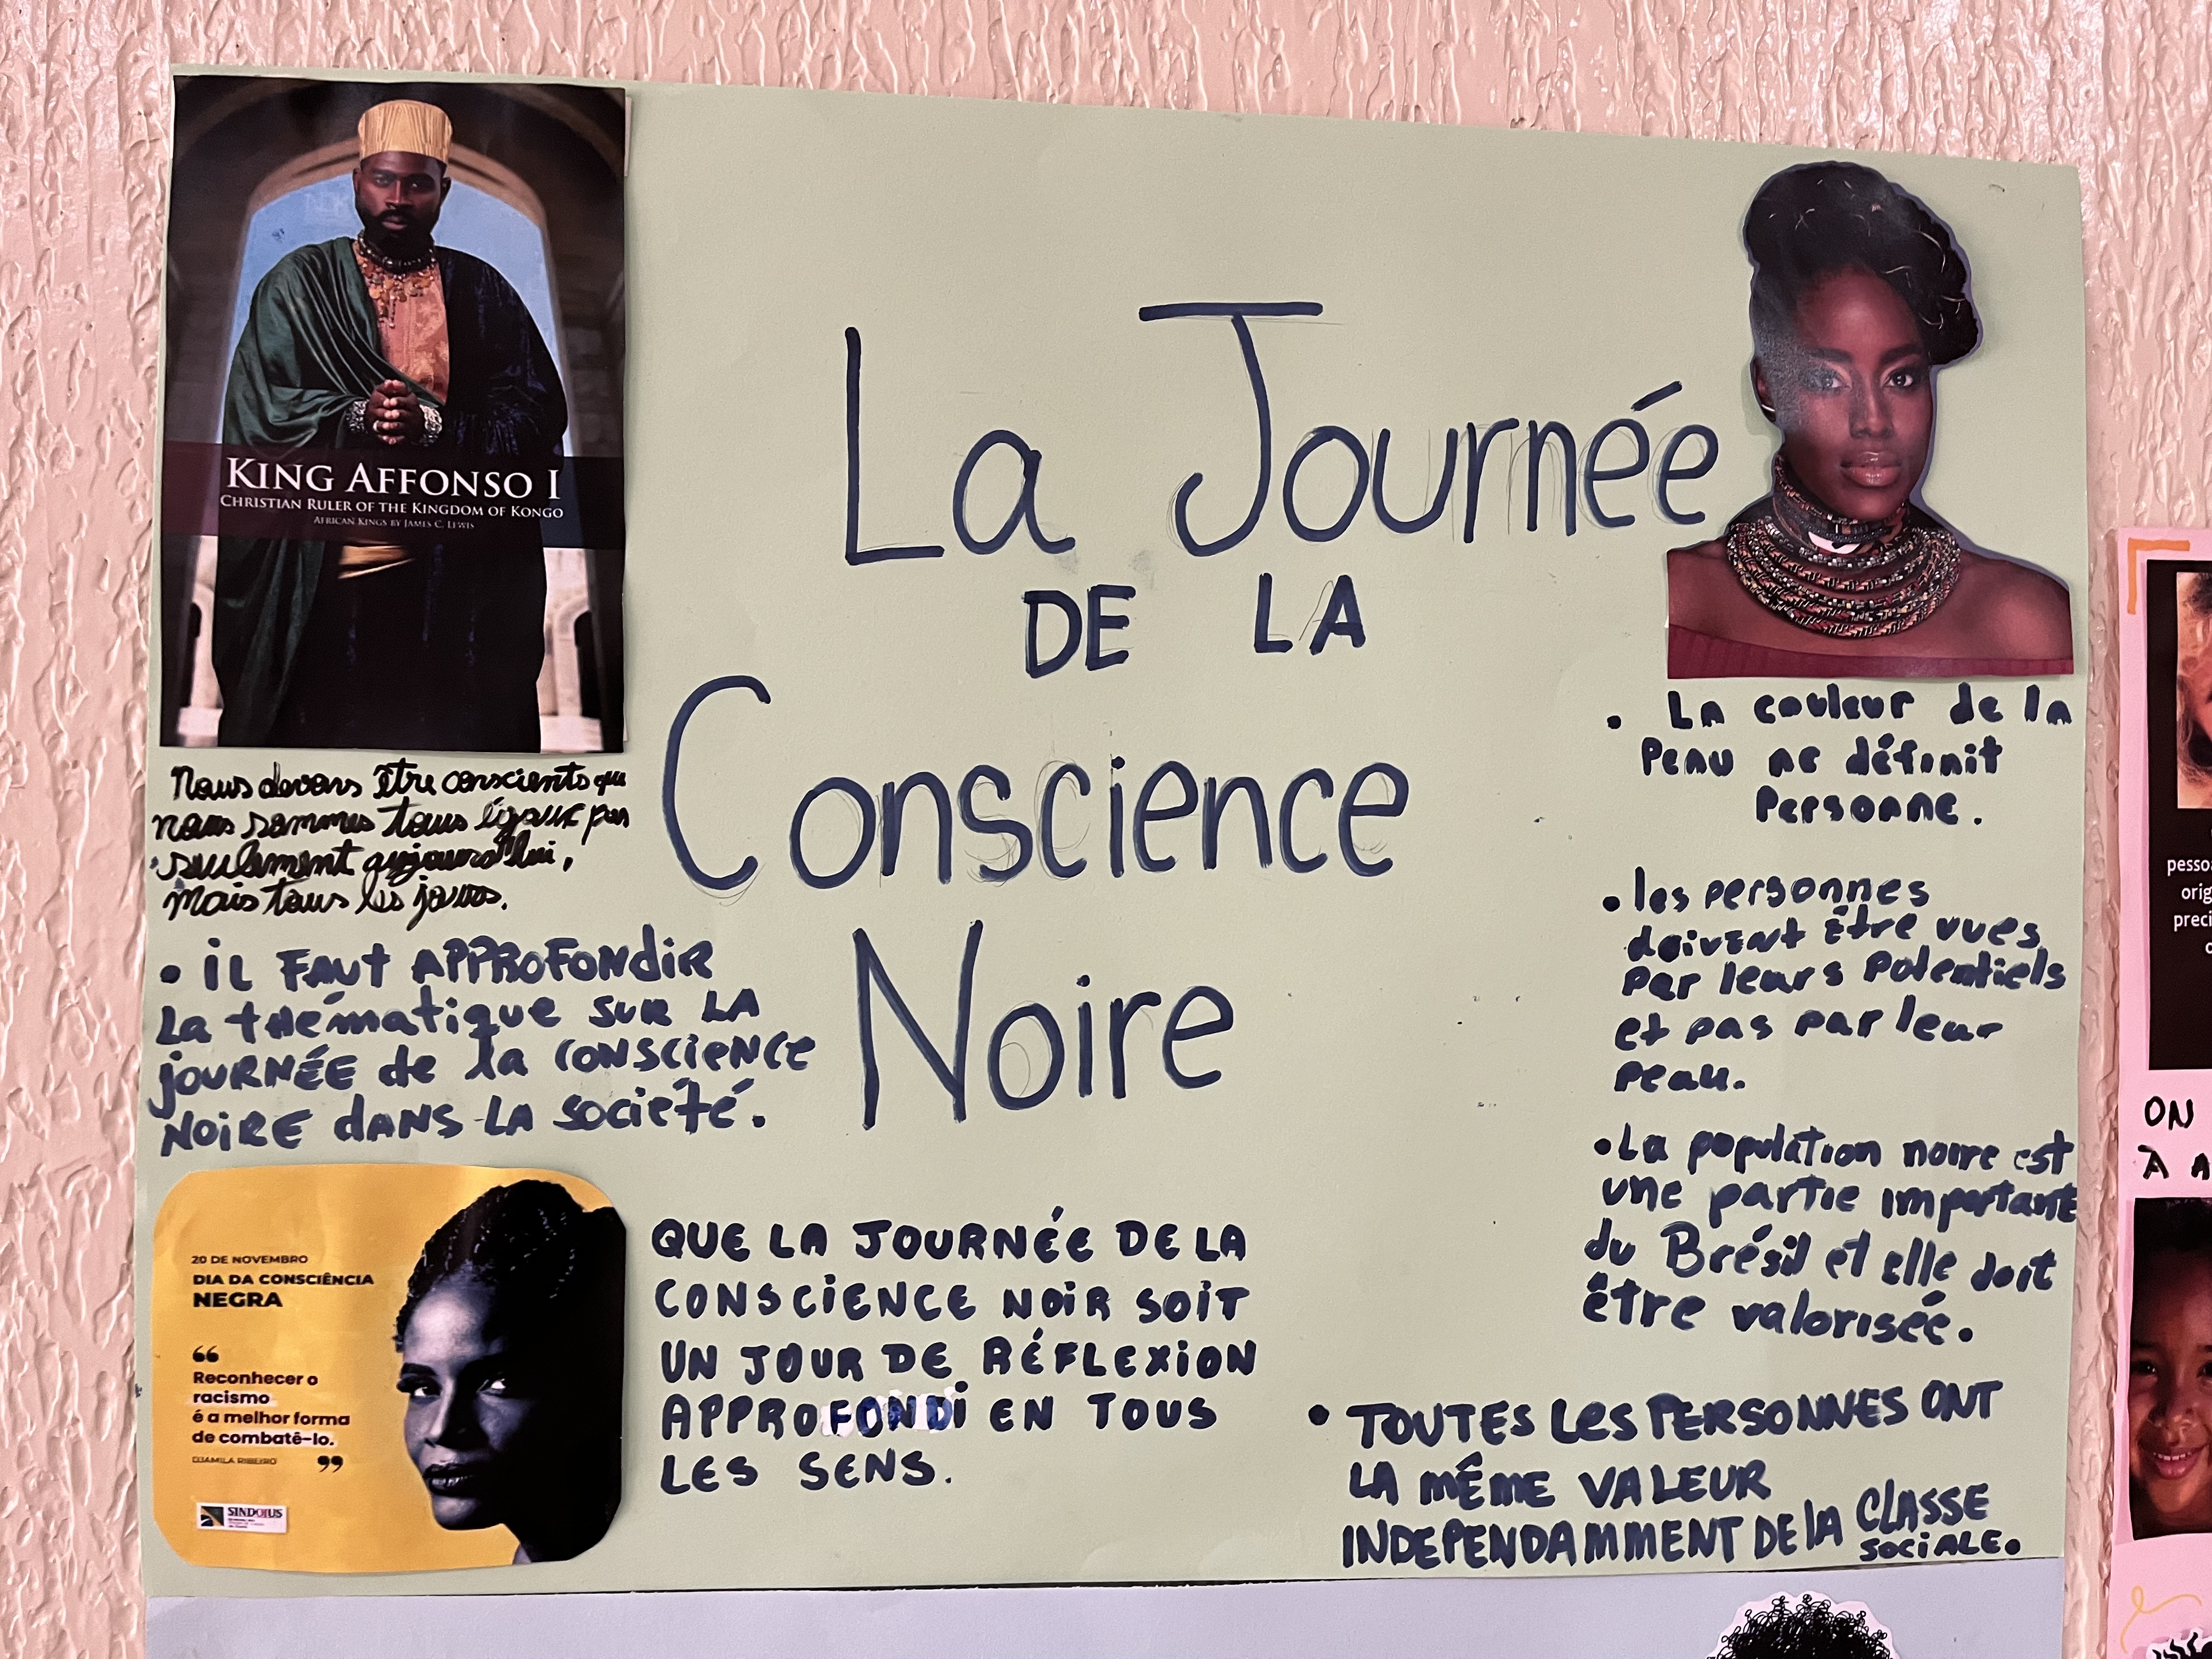 KING AFFONSO I
CHRISTIAN RULER OF THE KINGDOM OF KONGO
AFRICAN KINGS BY JAMES C. LEWIS
La Journée
DE LA
Conscience
Noire
Nous devons être conscients que
nous sommes tous égaux pas
seulement aujourd'hui,
mais tous les jours.
• iL FAUT APPROFONdiR
La thématique SUR LA
jOURNÉE de la CONSCIENCE
NOIRE dANS LA société.
20 DE NOVEMBRO
DIA DA CONSCIÊNCIA
NEGRA
“
Reconhecer o
racismo
é a melhor forma
de combatê-lo.
DJAMILA RIBEIRO ”
SINDOIUS
QUE LA JOURNÉE DE LA
CONSCIENCE NOIR SOIT
UN JOUR DE RÉFLEXION
APPROFONDI EN TOUS
LES SENS.
• La couleur de la
Peau ne définit
Personne.
• les personnes
doivent être vues
par leurs potentiels
et pas par leur
peau.
• La population noire est
une partie important
du Brésil et elle doit
être valorisée.
• TOUTES LES PERSONNES ONT
LA MÊME VALEUR
INDEPENDAMMENT DE LA CLASSE
SOCIALE.
pesso
orig
preci
ON
À A